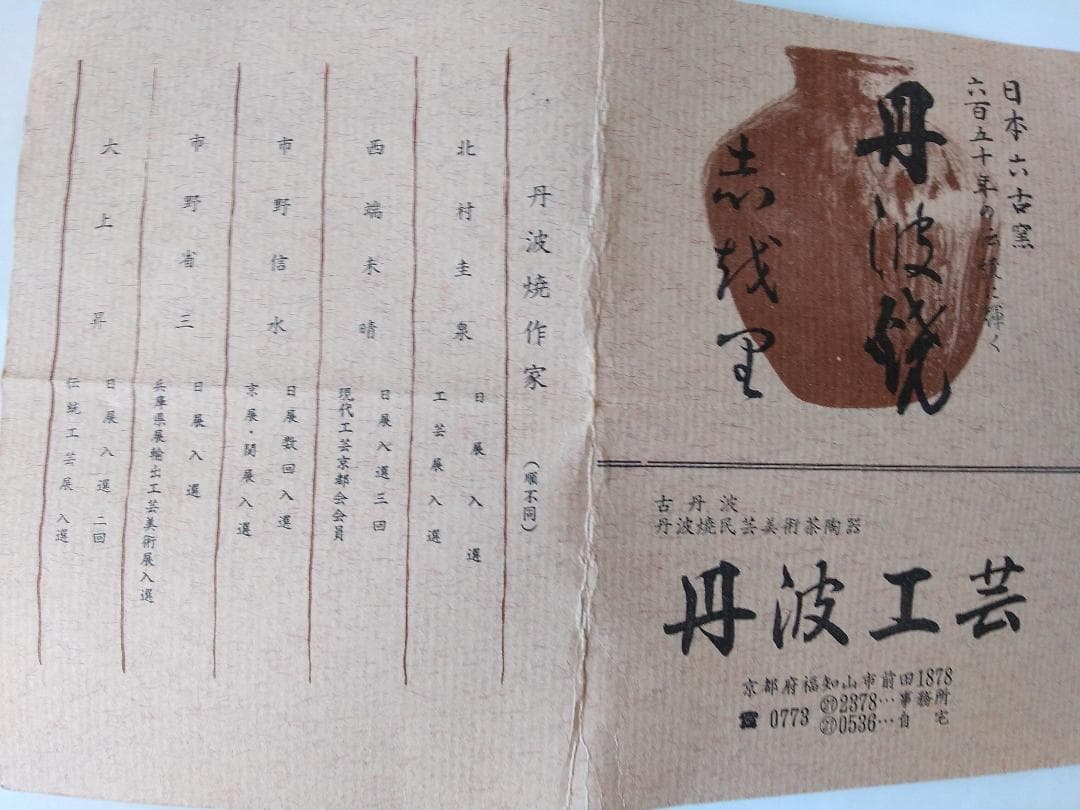 日本六古窯
六百五十年の伝統に輝く
丹波焼
志越里
古丹波
丹波焼民芸美術茶陶器
丹波工芸
京都府福知山市前田1878
☎ 0773 ㉗2378…事務所
㉗0536…自宅
丹波焼作家 (順不同)
北村圭泉
日展入選
工芸展入選
西端末晴
日展入選三回
現代工芸京都会会員
市野信水
日展数回入選
京展・関展入選
市野省三
日展入選
兵庫県展輸出工芸美術展入選
大上昇
日展入選二回
伝統工芸展入選